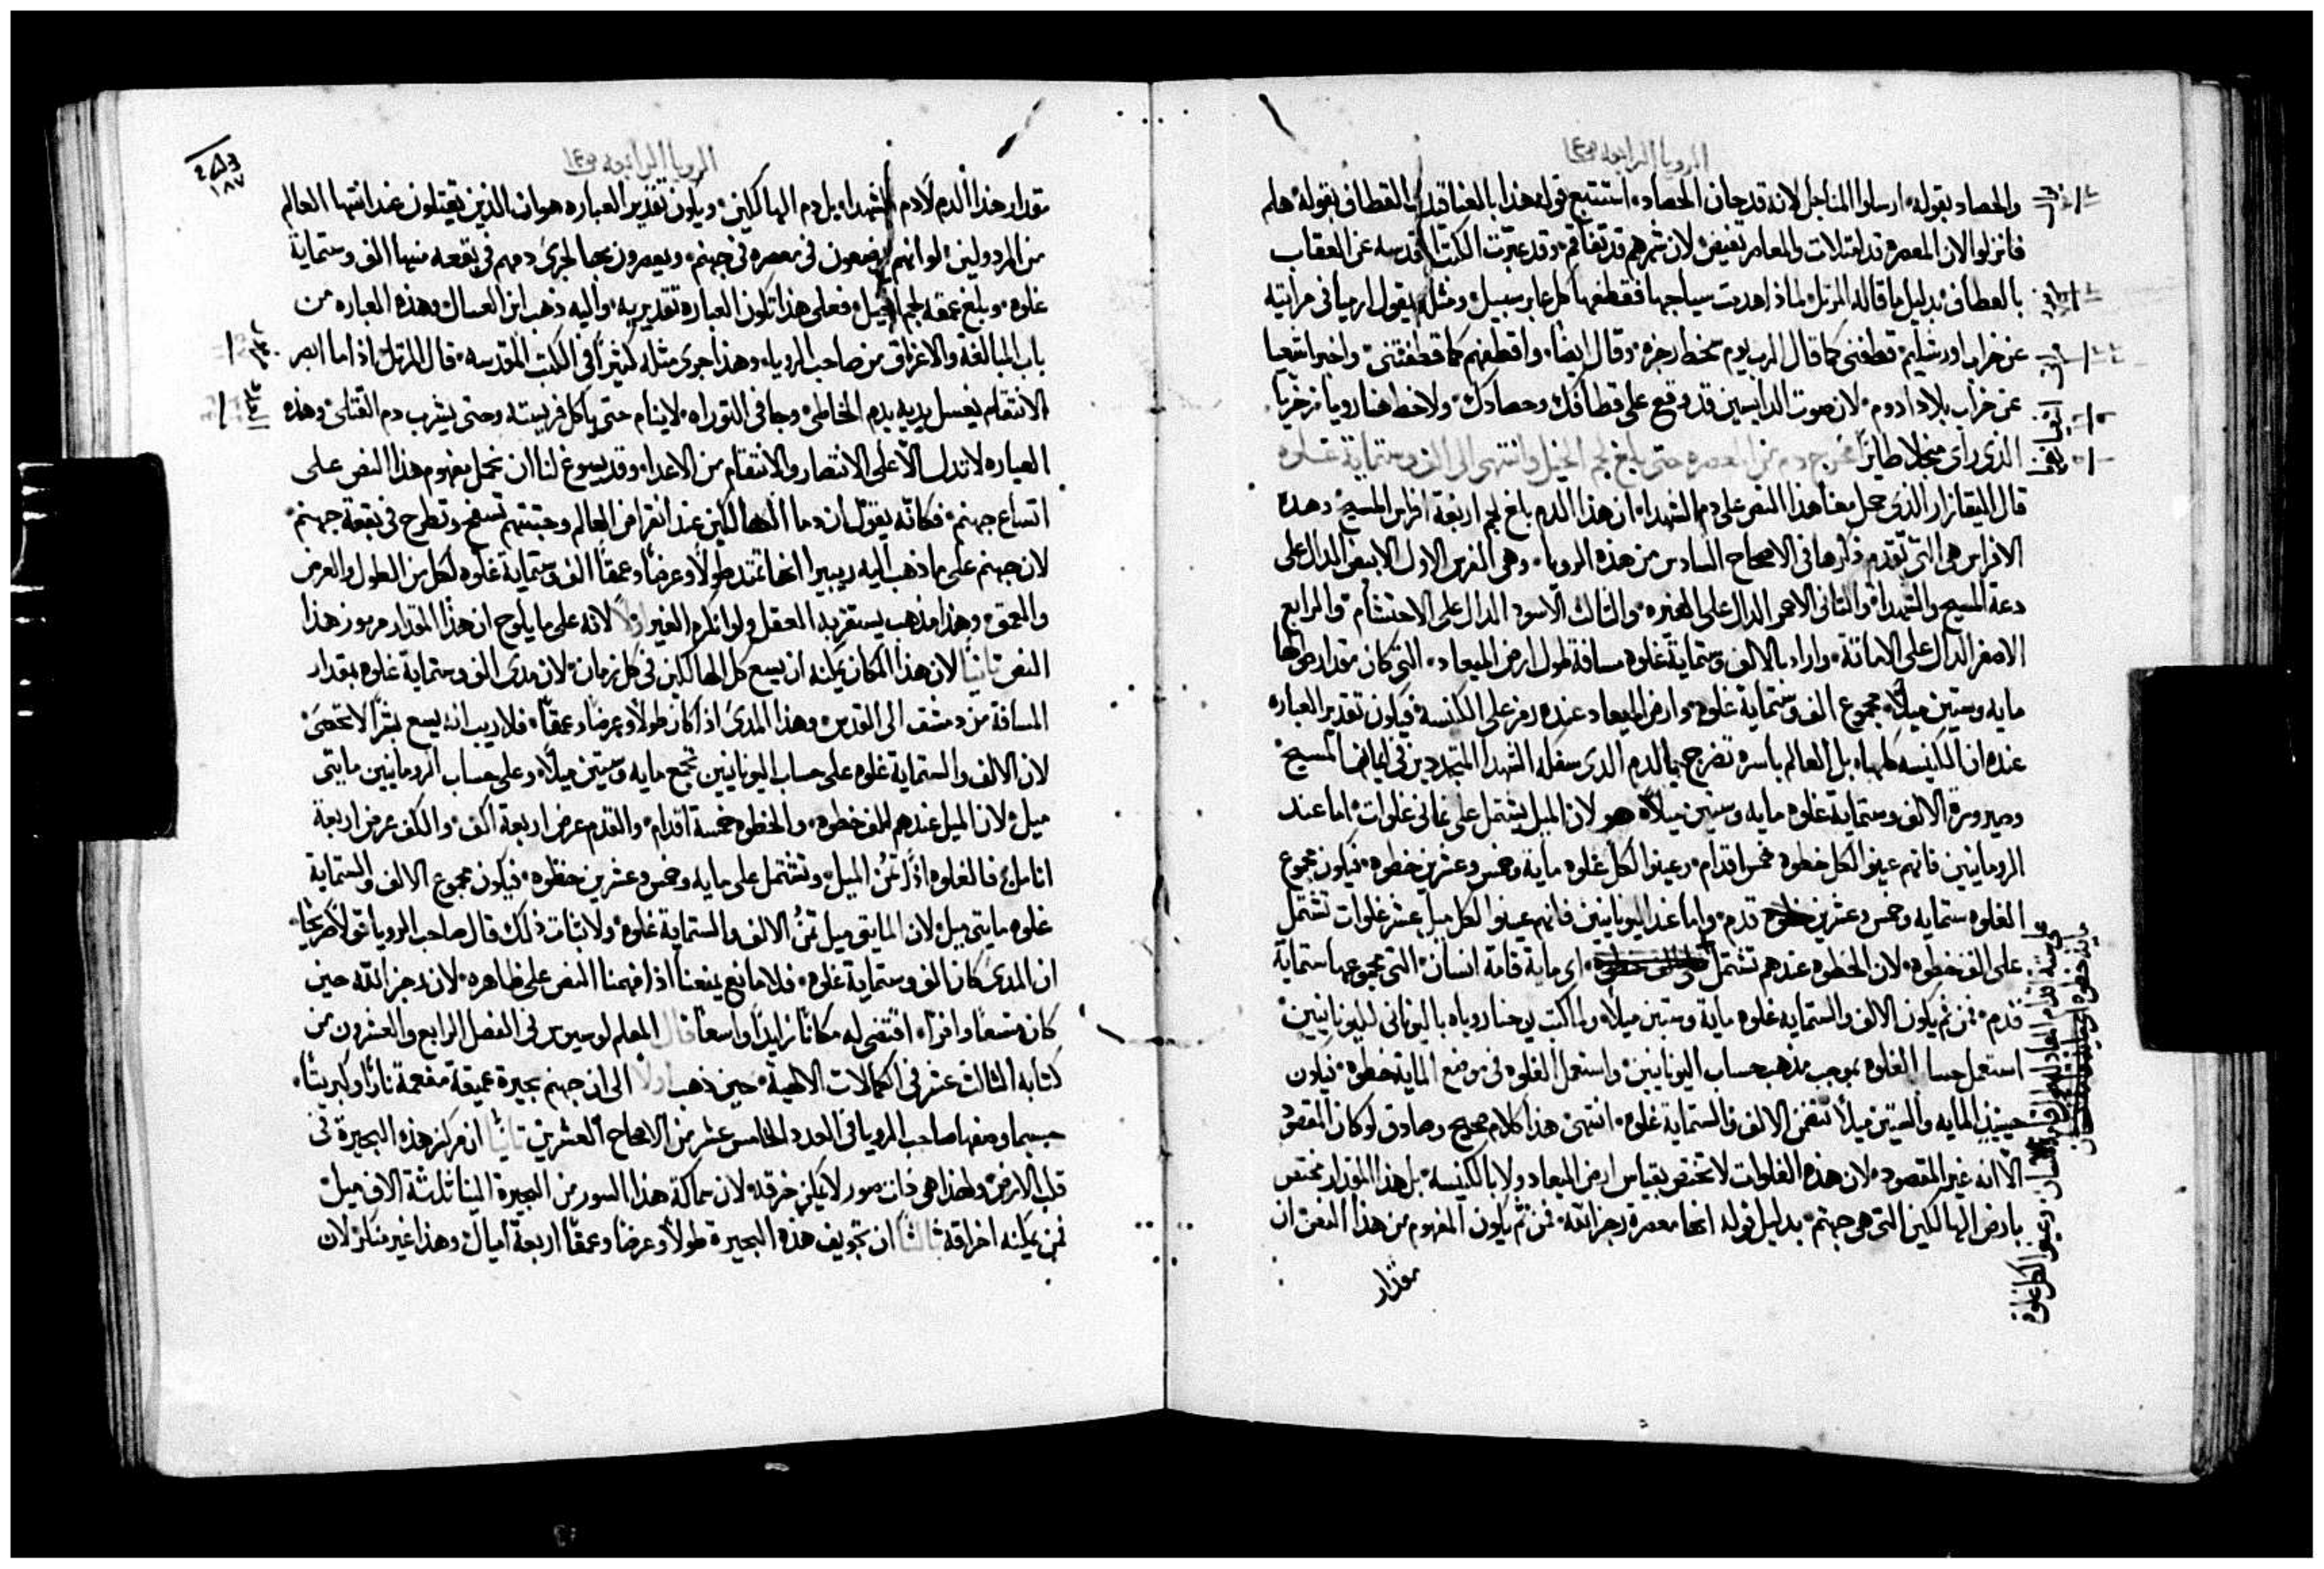 الرويا الرابعه ص١٤
والحصاد بقوله ارسلوا المناجل لانه قد حان الحصاد استتبع قوله هذا بالمعنا قدك القطاف بقوله هلم
فانزلوا لان المعصره قد امتلات والمعاصر تفيض لان شرهم قد تفاقم وقد عبرت الكتب المقدسه عن العقاب
بالقطاف بدليل ما قاله المرتل لماذا هدمت سياجها فقطفها كل عابر سبيل ومثله يقول ارميا في مراثيه
عن خراب اورشليم قطفني كما قال الرب يوم سخط رجزه وقال ايضا واقطفهم كما قطفتني واخبر اشعيا
عن خراب بلاد ادوم لان صوت الدايسين قد وقع على قطافك وحصادك ولاحظ هنا رويا زخريا
الذي راى منجلا طايرًا فخرج دم من المعصره حتى بلغ لجم الخيل وانتهى الى الف وستماية غلوه
قال اليقازار الذي حمل معنا هذا النص على دم الشهدا ان هذا الدم بلغ لجم اربعة افراس المسيح وهذه
الافراس هي التي تقدم ذكرها في الاصحاح السادس من هذه الرويا وهي الفرس الاول الابيض الدال على
دعة المسيح والشهدا والثاني الاحمر الدال على الغيره والثالث الاسود الدال على الاحتشام والرابع
الاصفر الدال على الاماتة واراد بالالف وستماية غلوه مسافة طول ارض الميعاد التي كان مقدار طولها
مايه وستين ميلاً مجموع الف وستماية غلوه وارض الميعاد عنده رمز على الكنسه فيكون تقدير العباره
عنده ان الكنيسه كلها بل العالم باسره تضرج بالدم الذي سفكه الشهدا المتجددين في ايمان المسيح
وصيرورة الالف وستماية غلوه مايه وستين ميلاً هو لان الميل يشتمل على ثماني غلوات اما عند
الرومانيين فانهم عينوا لكل خطوه خمس اقدام وعينوا لكل غلوه ماية وخمس وعشرين خطوه فيكون مجموع
الغلوه ستمايه وخمس وعشرين قدم واما عند اليونانيين فانهم عينوا لكل ميل عشر غلوات تشتمل
على الف خطوه لان الخطوه عندهم تشتمل اي ماية قامة انسان التي مجموعها ستماية
قدم فمن ثم يكون الالف والستمايه غلوه ماية وستين ميلاً ولما كتب يوحنا روياه باليوناني لليونانيين
استعمل حسا الغلوه بموجب مذهب حساب اليونانيين واستعمل الغلوه في موضع الماية خطوه فيكون
حينيذ المايه والستين ميلاً تتضمن الالف والستماية غلوه انتهى هذا كلام صحيح وصادق لو كان المقصود
الا انه غير المقصود لان هذه الغلوات لا تختص بقياس ارض الميعاد ولا بالكنيسه بل هذا المقدار مختص
بارض الهالكين التي هي جهنم بدليل قوله انها معصرة رجز الله فمن ثم يكون المفهوم من هذا النص ان
مقدار
الرويا الرابعه ص١٤
١٨٧
مقدار هذا الدم لا دم الشهدا بل دم الهالكين ويكون تقدير العباره هو ان الذين يقتلون عند انتها العالم
من المردولين لو انهم يوضعون في معصره في جهنم ويعصرون بها لجرى دمهم في بقعه منها الف وستماية
غلوه وبلغ عمقه لجم الخيل فعلى هذا تكون العباره تقديريه واليه ذهب ابن العسال وهذه العباره من
باب المبالغة والاغراق من صاحب الرويا وهذا جرى مثله كثيرًا في الكتب المقدسه قال المرتل اذا ما ابصر
الانتقام يغسل يديه بدم الخاطى وجا في التوراه لا ينام حتى ياكل فريسته وحتى يشرب دم القتلى وهذه
العباره لا تدل الا على الانتصار والانتقام من الاعدا وقد يسوغ لنا ان نحمل مفهوم هذا النص على
اتساع جهنم فكانه يقول ان دما الهالكين عند انقراض العالم وجثثهم تسفح وتطرح في بقعة جهنم
لان جهنم على ما ذهب اليه ريبيرا انها تمتد طولاً وعرضًا وعمقًا الف وستماية غلوه لكل من الطول والعرض
والعمق وهذا مذهب يستقر به العقل ولو انكره الغير اولاً لانه على ما يلوح ان هذا المقدار مرموز هذا
النص ثانيًا لان هذا المكان يمكنه ان يسع كل الهالكين في كل زمان لان مدى الف وستماية غلوه بمقدار
المسافة من دمشق الى القدس وهذا المدى اذا كان طولاً وعرضًا وعمقًا فلا ريب انه يسع بشرًا لا تحصى
لان الالف والستماية غلوه على حساب اليونانيين تجمع مايه وستين ميلاً وعلى حساب الرومانيين مايتى
ميل لان الميل عندهم الف خطوه والخطوه خمسة اقدام والقدم عرض اربعة اكف والكف عرض اربعة
انامل فالغلوه اذًا ثمن الميل وتشتمل على مايه وخمس وعشرين خطوه فيكون مجموع الالف والستماية
غلوه مايتى ميل لان المايتى ميل ثمن الالف والستماية غلوه ولاثبات ذلك قال صاحب الرويا قولاً صريحًا
ان المدى كان الف وستماية غلوه فلا مانع يمنعنا اذا فهمنا النص على ظاهره لان رجز الله حين
كان متسعًا وافرًا اقتضى له مكانًا زايدًا واسعًا قال المعلم لوسيوس في الفصل الرابع والعشرون من
كتابه الثالث عشر في الكمالات الالهية حين ذهب اولاً الى ان جهنم بحيرة عميقة مفعمة نارًا وكبريتًا
حسبما وصفها صاحب الرويا في العدد الخامس عشر من الاصحاح العشرين ثانيًا ان مركز هذه البحيرة في
قلب الارض ولهذا هي ذات سور لا يمكن خرقه لان سماكة هذا السور من البحيرة الينا ثلثة الاف ميل
فمن يمكنه اختراقه ثالثًا ان تجويف هذه البحيرة طولاً وعرضًا وعمقًا اربعة اميال وهذا غير منكر لان